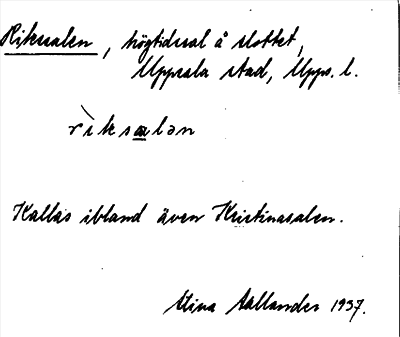 Rikssalen, högtidssal å slottet,
Uppsala stad, Upps. l.
rìksalən
Kallas ibland även Kristinasalen.
Stina Aallander 1937.